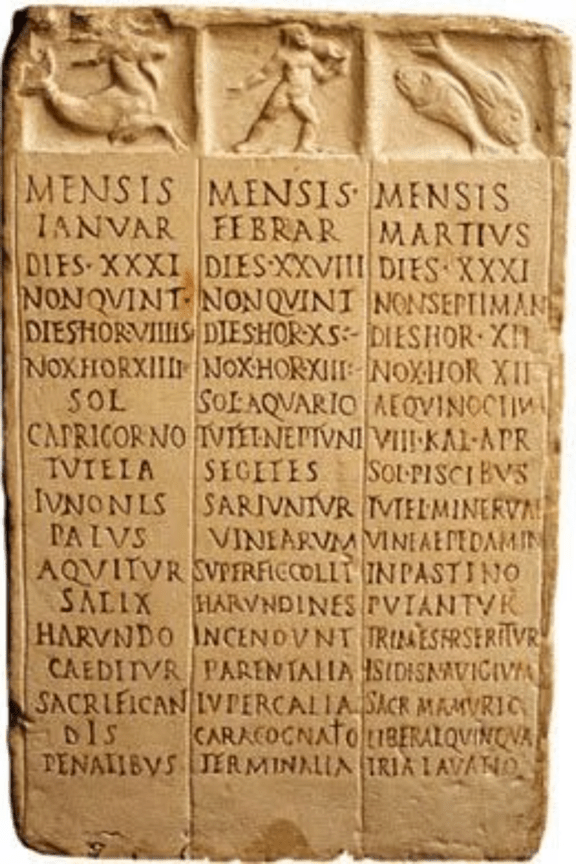 MENSIS
IANVAR
DIES·XXXI
NONQVINT·
DIESHOR·VIIIIS
NOX·HORXIIII
SOL
CAPRICORNO
TVTELA
IVNONIS
PALVS
AQVITVR
SALIX
HARVNDO
CAEDITVR
SACRIFICAN
DIS
PENATIBVS
MENSIS·
FEBRAR
DIES·XXVIII
NONQVINT
DIESHOR·XS
NOX·HOR·XIII
SOL·AQVARIO
TVTEL·NEPTVNI
SEGETES
SARIVNTVR
VINEARVM
SVPERFICCOLLT
HARVNDINES
INCENDVNT
PARENTALIA
LVPERCALIA
CARACOGNATO
TERMINALIA
MENSIS
MARTIVS
DIES·XXXI
NONSEPTIMAN
DIESHOR·XII
NOX·HOR XII
AEQVINOCTIVM
VIII·KAL·APR
SOL·PISCIBVS
TVTEL·MINERVAE
VINEAEPEDAMIN
INPASTINO
PVTANTVR
TRIMESTRSERITVR
ISIDISNAVIGIVM
SACR MAMVRIO
LIBERALQVINQVA
TRIALAVATIO